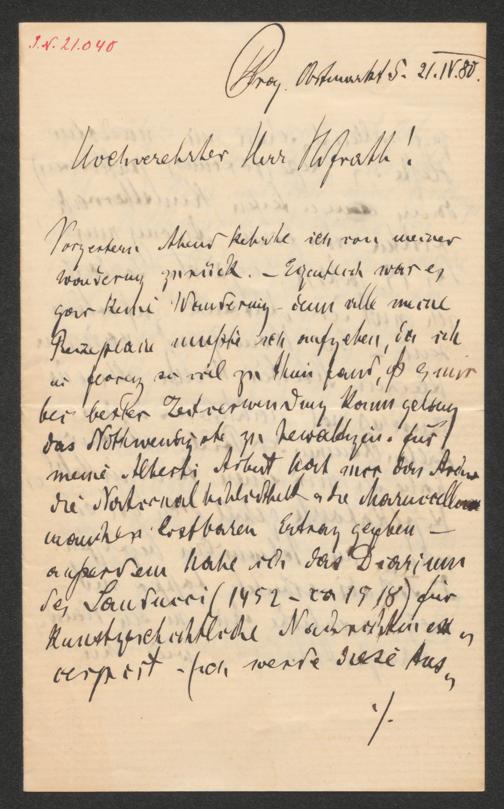 I.N. 21.040
Prag. Obstmarkt 5. 21.IV.80.
Hochverehrter Herr Hofrath!
Vorgestern Abend kehrte ich von meiner
Wanderung zurück. – Eigentlich war es
gar keine Wanderung – denn alle meine
Reisepläne mußte ich aufgeben, da ich
in Florenz so viel zu thun fand, daß es mir
bei bester Zeitverwendung kaum gelang
das Nothwendigste zu bewältigen. Für
meine Alberti Arbeit hat mir das Archiv
die Nationalbibliothek u die Marucelliana
manchen kostbaren Ertrag gegeben –
außerdem habe ich das Diarium
des Landucci (1452 – ca 1518) für
Kunstgeschichtliche Nachrichten
– ich werde diese Aus„
./.